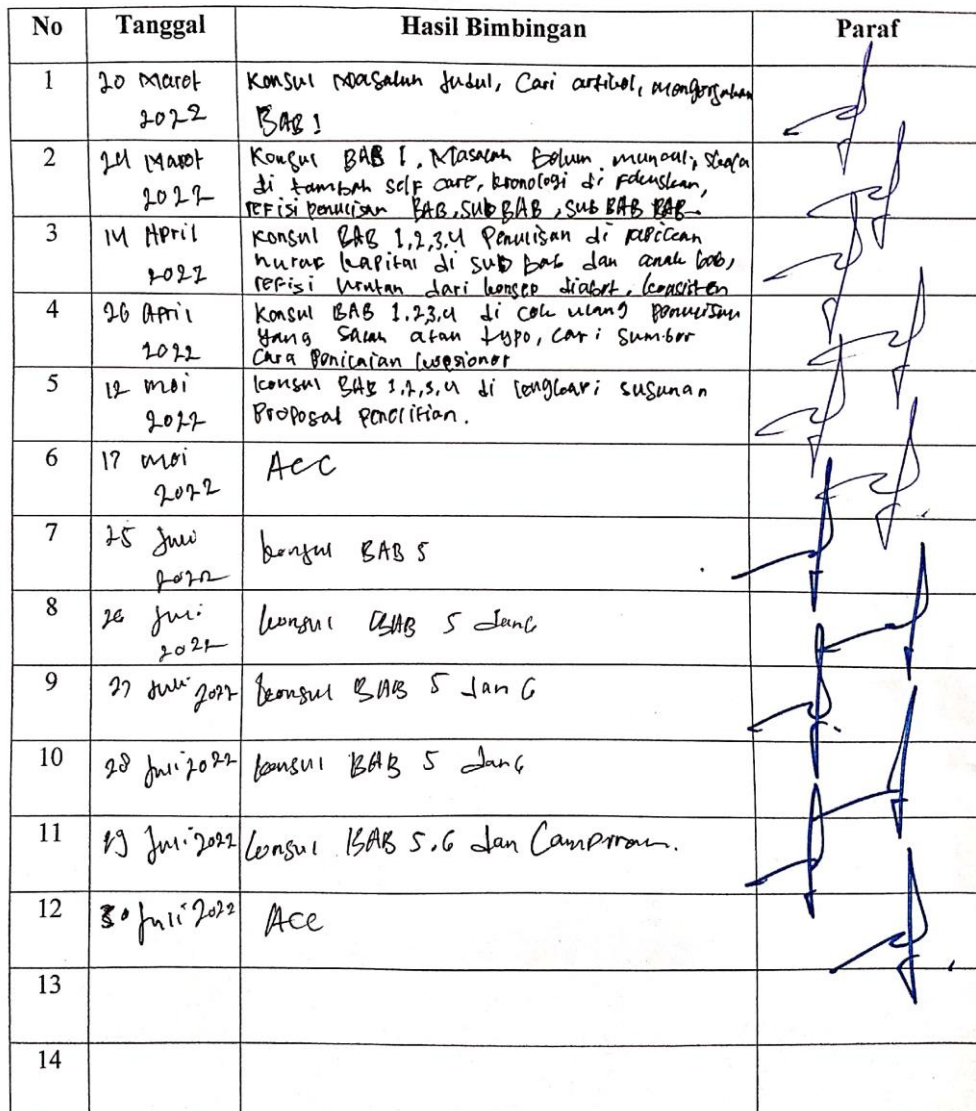 No Tanggal Hasil Bimbingan Paraf
1 20 Maret Konsul Masalah Judul, Cari artikel, mengerjakan
2022 BAB 1
2 24 Maret Konsul BAB 1, Masalah belum muncul,
2022 di tambah self care, kronologi di fokuskan,
refisi penulisan BAB, SUB BAB, SUB BAB BAB
3 14 April Konsul BAB 1,2,3,4 Penulisan di
2022 huruf kapital di sub bab dan anak bab,
refisi urutan dari konsep diabet, konsisten
4 26 April Konsul BAB 1,2,3,4 di cek ulang penulisan
2022 yang salah atau typo, cari sumber
cara penilaian kuesioner
5 12 mei konsul BAB 1,2,3,4 di lengkapi susunan
2022 Proposal penelitian.
6 17 mei ACC
2022
7 25 konsul BAB 5
2022
8 26 Juli konsul BAB 5 dan 6
2022
9 27 Juli 2022 konsul BAB 5 dan 6
10 28 Juli 2022 konsul BAB 5 dan 6
11 29 Juli 2022 konsul BAB 5.6 dan Lampiran.
12 30 Juli 2022 ACC
13
14